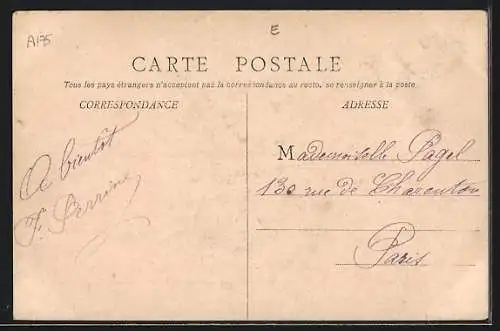 A175
E
CARTE POSTALE
Tous les pays étrangers n'acceptent pas la correspondance au recto, se renseigner à la poste.
CORRESPONDANCE
ADRESSE
A bientôt
F. Perrine
Mademoiselle Pagel
130 rue de Charenton
Paris